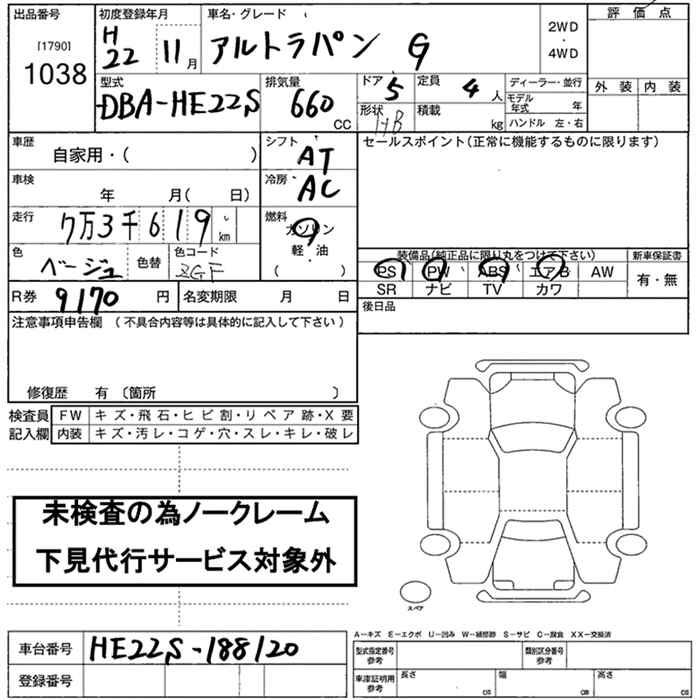 出品番号 初度登録年月 車名・グレード 評価点
[1790] 1038 H22 11月 アルトラパン G 2WD・4WD
外装 内装
型式 排気量 ドア 定員 ディーラー・並行
DBA-HE22S 660 CC 5 4人 モデル年式 年
形状 積載 kg ハンドル 左・右
HB
車歴 シフト セールスポイント(正常に機能するものに限ります)
自家用・( ) AT
車検 冷房
年 月( 日) AC
走行 燃料
7万3千619 km ガソリン
軽・油
( )
色 色替 色コード 装備品(純正品に限り丸をつけて下さい) 新車保証書
ベージュ ZGF PS PW ABS エアB AW 有・無
SR ナビ TV カワ
R券 9170 円 名変期限 月 日 後日品
注意事項申告欄(不具合内容等は具体的に記入して下さい)
修復歴 有〔箇所 〕
検査員 FW キズ・飛石・ヒビ割・リペア跡・X要
記入欄 内装 キズ・汚レ・コゲ・穴・スレ・キレ・破レ
未検査の為ノークレーム
下見代行サービス対象外
スペア
A-キズ E-エクボ U-凹み W-補修跡 S-サビ C-腐食 XX-交換済
車台番号 HE22S-188120 型式指定番号 参考 類別区分番号 参考
登録番号 車庫証明用 参考 長さ cm 幅 cm 高さ cm